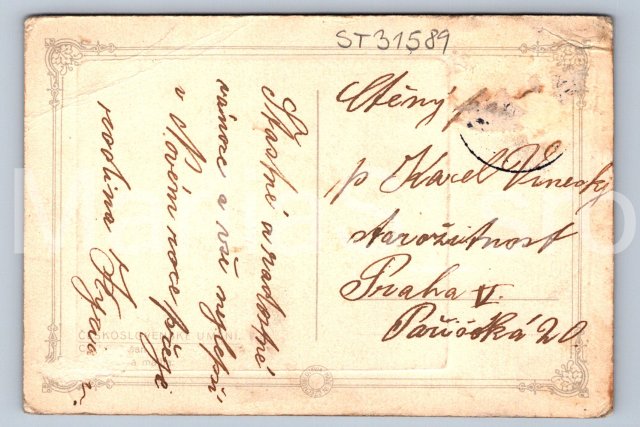 ST31589
Ctěný
p Karel Vinecký
starožitnost
Praha V.
Pařížská 20
Šťastné a radostné
vánoce a vše nejlepší
v Novém roce přeje
rodina
ČESKOSLOVENSKÉ UMĚNÍ.